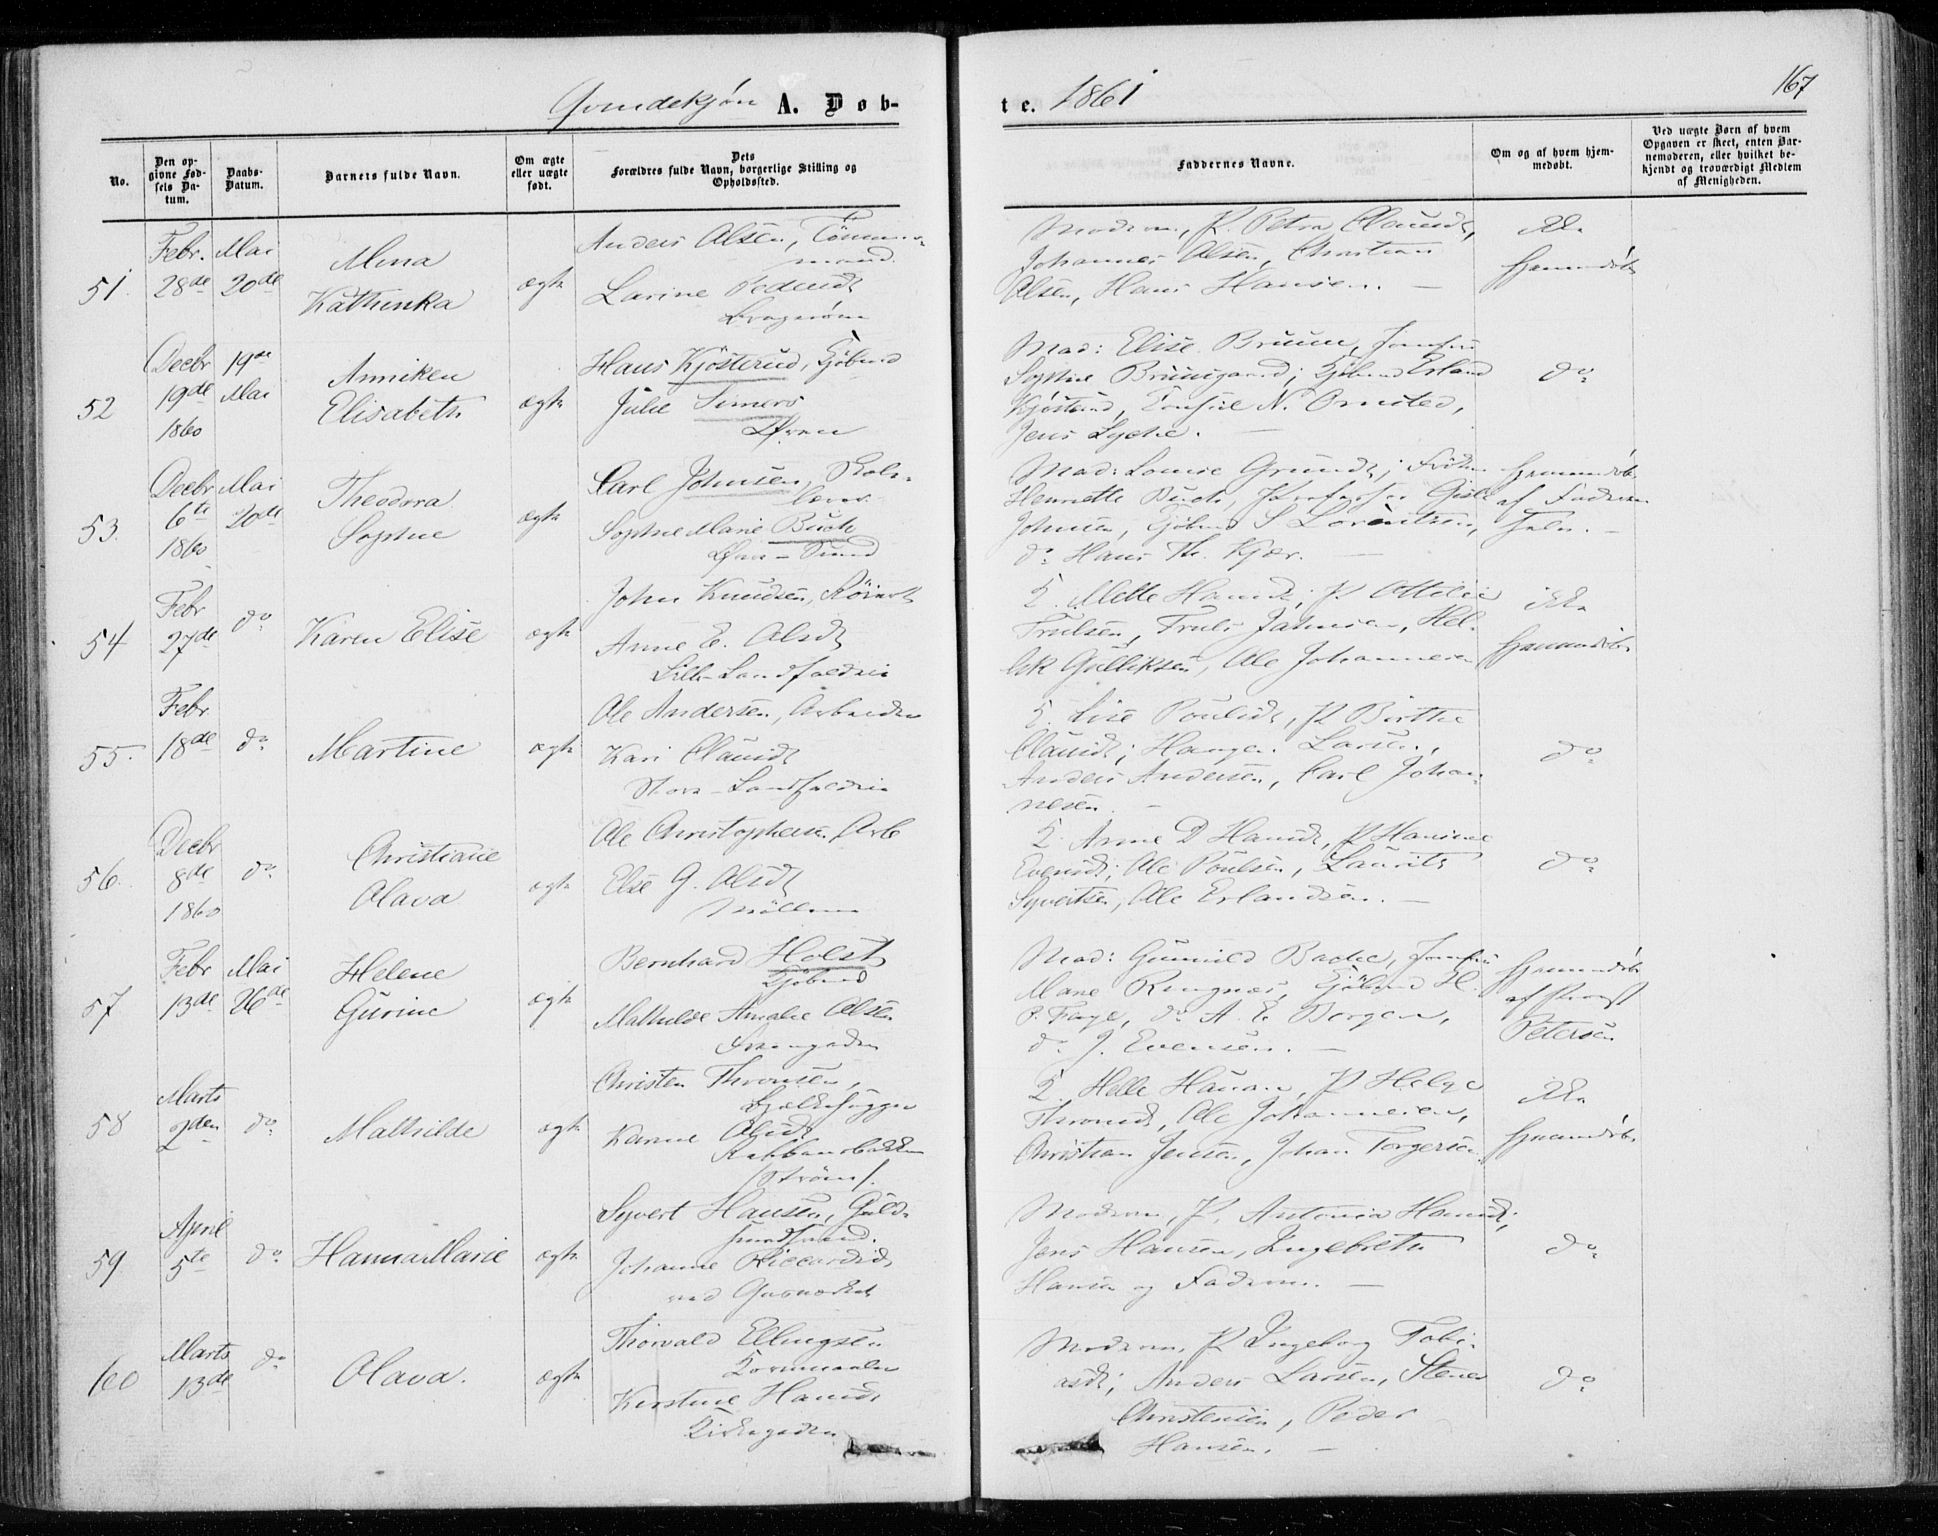 Qvindekjøn A. Døb-
te. 1861
167
No.
Den op-
givne Fød-
sels Da-
tum.
Daabs-
Datum.
Barnets fulde Navn.
Om ægte
eller uægte
født.
Dets
Forældres fulde Navn, borgerlige Stilling og
Opholdssted.
Faddernes Navne.
Om og af hvem hjem-
medøbt.
Ved uægte Børn af hvem
Opgaven er skeet, enten Bar-
nemoderen, eller hvilket be-
kjendt og troværdigt Medlem
af Menigheden.
51.
Febr.
28de
Mai
20de
Mina
Kathinka
ægte
Anders Olsen, Tømmer-
mand.
Larine Pedersdt
Bragernæs
Modren, P. Petra Clausdt,
Johannes Olsen, Christian
Olsen, Hans Hansen. —
ikke
hjemmedøbt
52
Decbr
19de
1860
19de
Mai
Anniken
Elisabeth
ægte
Hans Kjøsterud, Kjøbmd
Julie Simers
Øren
Mad: Elise Bruun, Jomfru
Sophie Bruusgaard, Kjøbmd Erland
Kjøsterud, Consul N. Omsted,
Jens Lyche. —
do
53.
Decbr
6te
1860
Mai
20de
Theodora
Sophie
ægte
Carl Johnsen, Skole-
lærer
Sophie Marie Buch
Øvre-Sund
Mad: Louise Grundt, Frøken
Henriette Buch, Professor Gisle
Johnsen, Kjøbmd S Lorentsen,
do Hans Th. Kjær. —
hjemmedøbt
af Faderen
selv. —
54
Febr
27de
do
Karen Elise
ægte
John Knudsen,
Anne E. Olsdt
Lille-Landfaldøie
K. Mette Hansdt, P Ottilie
Trulsen, Truls Jahnsen, Hel-
Gulliksen, Ole Johannesen
ikke
hjemmedøbt
55.
Febr
18de
do
Martine
ægte
Ole Andersen, Arbeider
Kari Clausdt
Store-Landfaldøie
K. Lise Poulsdt, P Birthe
Clausdt, Larsen,
Anders Andersen, Carl Johan-
nesen. —
do
56.
Decbr
8de
1860
do
Christiane
Olava
ægte
Ole Christophersen, Arb
Else G. Olsdt
Møllern
K. Anne D Hansdt, P Hansine
Evensdt, Ole Poulsen, Laurits
Syvertsen, Ole Erlandsen. —
do
57
Febr
13de
Mai
26de
Helene
Gurine
ægte
Bernhard Holst
Kjøbmd
Mathilde Amalie Olsen
Mad: Gunnild Bache, Jomfru
Marie Ringnæs, Kjøbmd H.
P. Faye, do A. E. Borgen,
do J. Evensen. —
hjemmedøbt
af Provst
Petersen
58
Marts
2den
do
Mathilde
ægte
Christen Thronsen,
Bjelkehugger
Karine Olsdt
Strøms.
K. Helle Hansen, P Helge
Thronsdt, Ole Johannesen,
Christian Jensen, Johan Torgersen.
ikke
hjemmedøbt
59
April
5te
do
Hanna Marie
ægte
Syvert Hansen, Guld-
smedsvend.
Johanne Riccardsdt
ved Gasværket
Modren, P. Antonia Hansdt,
Jens Hansen, Ingebreth
Hansen og Faderen. —
do
60
Marts
13de
do
Olava.
ægte
Thorvald Ellingsen
Kornmaaler
Kirstine Hansdt
Kirkegaden
Modren, P Ingeborg Tobi-
asdt, Anders Larsen, Stener
Christensen, Peder
Hansen. —
do